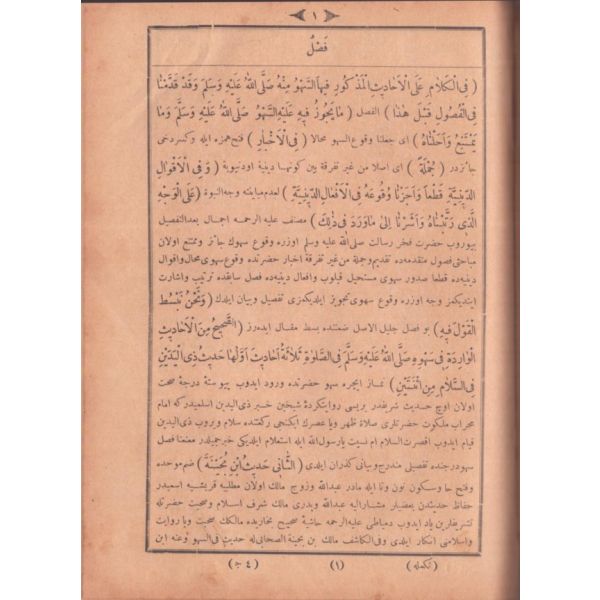 ١
فَصْلٌ
( فِى الْكَلَامِ عَلَى الْاَحَادِيثِ الْمَذْكُورِ فِيهَا السَّهْوُ مِنْهُ صَلَّى اللهُ عَلَيْهِ وَسَلَّمَ وَقَدْ قَدَّمْنَا
فِى الْفُصُولِ قَبْلَ هٰذَا ) الفصل ( مَا يَجُوزُ فِيهِ عَلَيْهِ السَّهْوُ صَلَّى اللهُ عَلَيْهِ وَسَلَّمَ وَمَا
يَمْتَنِعُ وَاَحَلْنَاهُ ) اى جعلنا وقوع السهو محالا ( فِى الْاَخْبَارِ ) فتح همزه ايله وكسر دخى
جائزدر ( جُمْلَةً ) اى اصلا من غير تفرقة بين كونها دينية اودنيوية ( وَفِى الْاَقْوَالِ
الدِّينِيَّةِ قَطْعًا وَاَجَزْنَا وُقُوعَهُ فِى الْاَفْعَالِ الدِّينِيَّةِ ) لعدم مباينته وجه النبوة ( عَلَى الْوَجْهِ
الَّذِى رَتَّبْنَاهُ وَاَشَرْنَا اِلَى مَا وَرَدَ فِى ذٰلِكَ ) مصنف عليه الرحمه اجمال بعد التفصيل
بيوروب حضرت فخر رسالت صلى الله عليه وسلم اوزره وقوع سهوك جائز وممتنع اولان
مباحثى فصول متقدمه ده تقديم وجملة من غير تفرقة اخبار حضرتنده وقوع سهوى محال واقوال
دينيه ده قطعا صدور سهوى مستحيل قيلوب وافعال دينيه ده فصل سابقده ترتيب واشارت
ايتديكمز وجه اوزره وقوع سهوى تجويز ايلديكمزى تفصيل وبيان ايلدك ( وَنَحْنُ نَبْسُطُ
الْقَوْلَ فِيهِ ) بو فصل جليل الاصل ضمننده بسط مقال ايدهرز ( الصَّحِيحُ مِنَ الْاَحَادِيثِ
الْوَارِدَةِ فِى سَهْوِهِ صَلَّى اللهُ عَلَيْهِ وَسَلَّمَ فِى الصَّلٰوةِ ثَلَاثَةُ اَحَادِيثَ اَوَّلُهَا حَدِيثُ ذِى الْيَدَيْنِ
فِى السَّلَامِ مِنِ اثْنَتَيْنِ ) نماز ايچره سهو حضرتنده ورود ايدوب پيوستهٔ درجهٔ صحت
اولان اوچ حديث شريفدر بريسى روايتكردهٔ شيخين خبر ذى اليدين اسلميدركه امام
محراب ملكوت حضرتلرى صلاة ظهر ويا عصرك ايكنجى ركعتنده سلام ويروب ذى اليدين
قيام ايدوب اقصرت السلام ام نسيت يارسول الله ايله استعلام ايلديكى خبر جميلدر معنعنا فصل
سهودرجنده تفصيلى مندرج وبيانى كذران ايلدى ( الثَّانِى حَدِيثُ ابْنِ بُحَيْنَةَ ) ضم موحده
وفتح حا وسكون نون وتا ايله مادر عبدالله وزوج مالك اولان مطلبيه قريشيه اسميدر
حفاظ حديثدن بعضيلر مشاراليه عبدالله وپدرى مالك شرف اسلام وصحبت حضرتله
تشريفلرين ياد ايدوب دمياطى عليه الرحمه حاشيهٔ صحيح بخاريده مالكك صحبت ويا روايت
واسلامنى انكار ايلدى وفى الكاشف مالك بن بحينة الصحابى له حديث فى السهو وعنه ابن
( تكمله ) ( ١ ) ( ٤ ج )